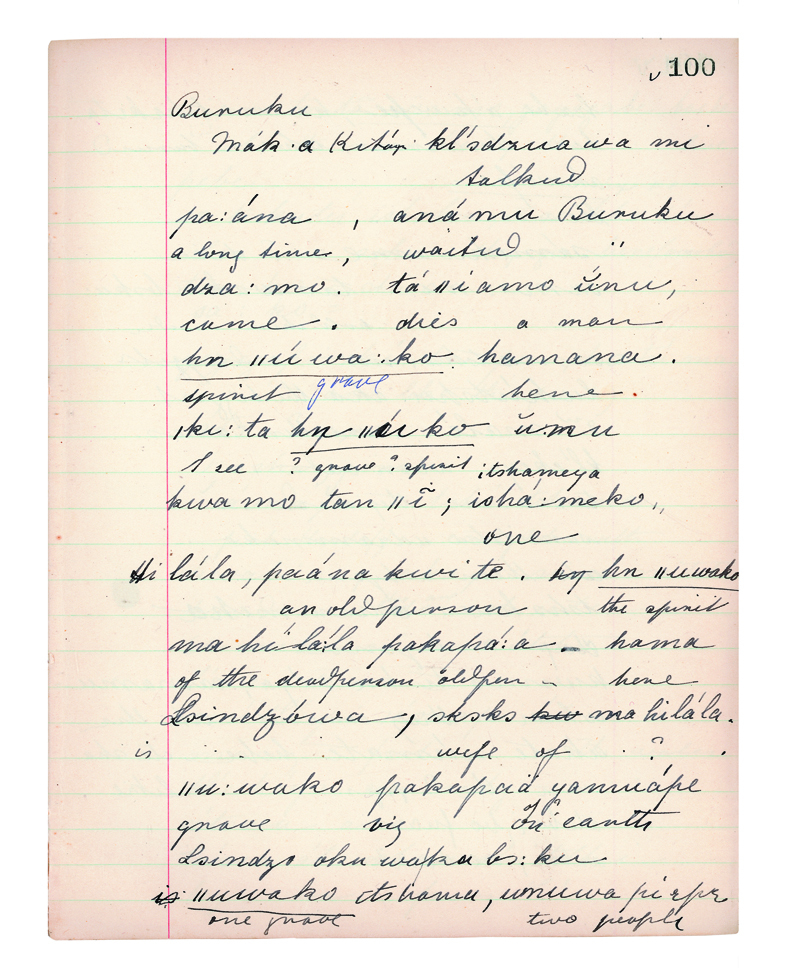 100
Buruku
Mák a Kitáŋ kl'sdzua wa mi
talked
pa:ána , anámu Buruku
a long time, waited "
dza: mo. tá ǁiamo ŭnu,
come . dies a man
hn ǁú wa:ko hamana.
spirit grave here.
ǀki: ta hŋ ǁúko ŭmu
I see ? grave ? spirit itshameya
kwa mo tan ǁĩ ; ishá:meko,,
one
Hilála, paána kwi te. hŋ hn ǁuwako
an old person the spirit
ma hílá:la pakapá:a - hama
of the dead person old per - here
Lsindzówa, sksks kw ma hilála.
is wife of ? .
ǁu: wako pakapaä yannuápe
grave big in earth
Lsindzo oku waka bs:ku
is ǁuwako itshama, unuwa pi
one grave two people